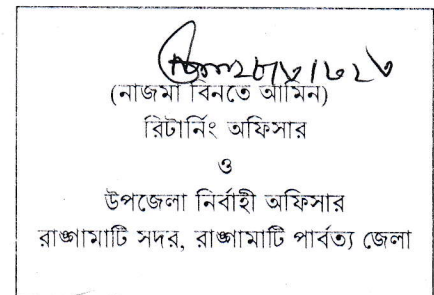 (নাজমা বিনতে আমিন)
রিটার্নিং অফিসার
ও
উপজেলা নির্বাহী অফিসার
রাঙ্গামাটি সদর, রাঙ্গামাটি পার্বত্য জেলা